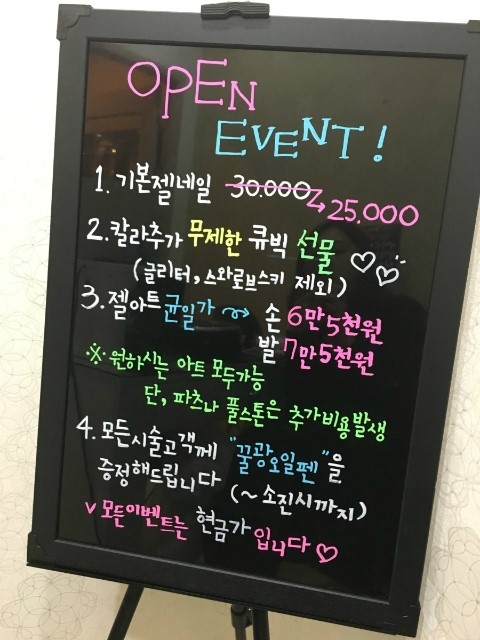 OPEN
EVENT!
1. 기본젤네일 30.000 25.000
2. 칼라추가 무제한 큐빅 선물
(글리터, 스와로브스키 제외)
3. 젤아트 균일가 손 6만5천원
발 7만5천원
※ 원하시는 아트 모두가능
단, 파츠나 풀스톤은 추가비용발생
4. 모든시술고객께 "꿀광오일펜"을
증정해드립니다 (~소진시까지)
v 모든이벤트는 현금가입니다♡